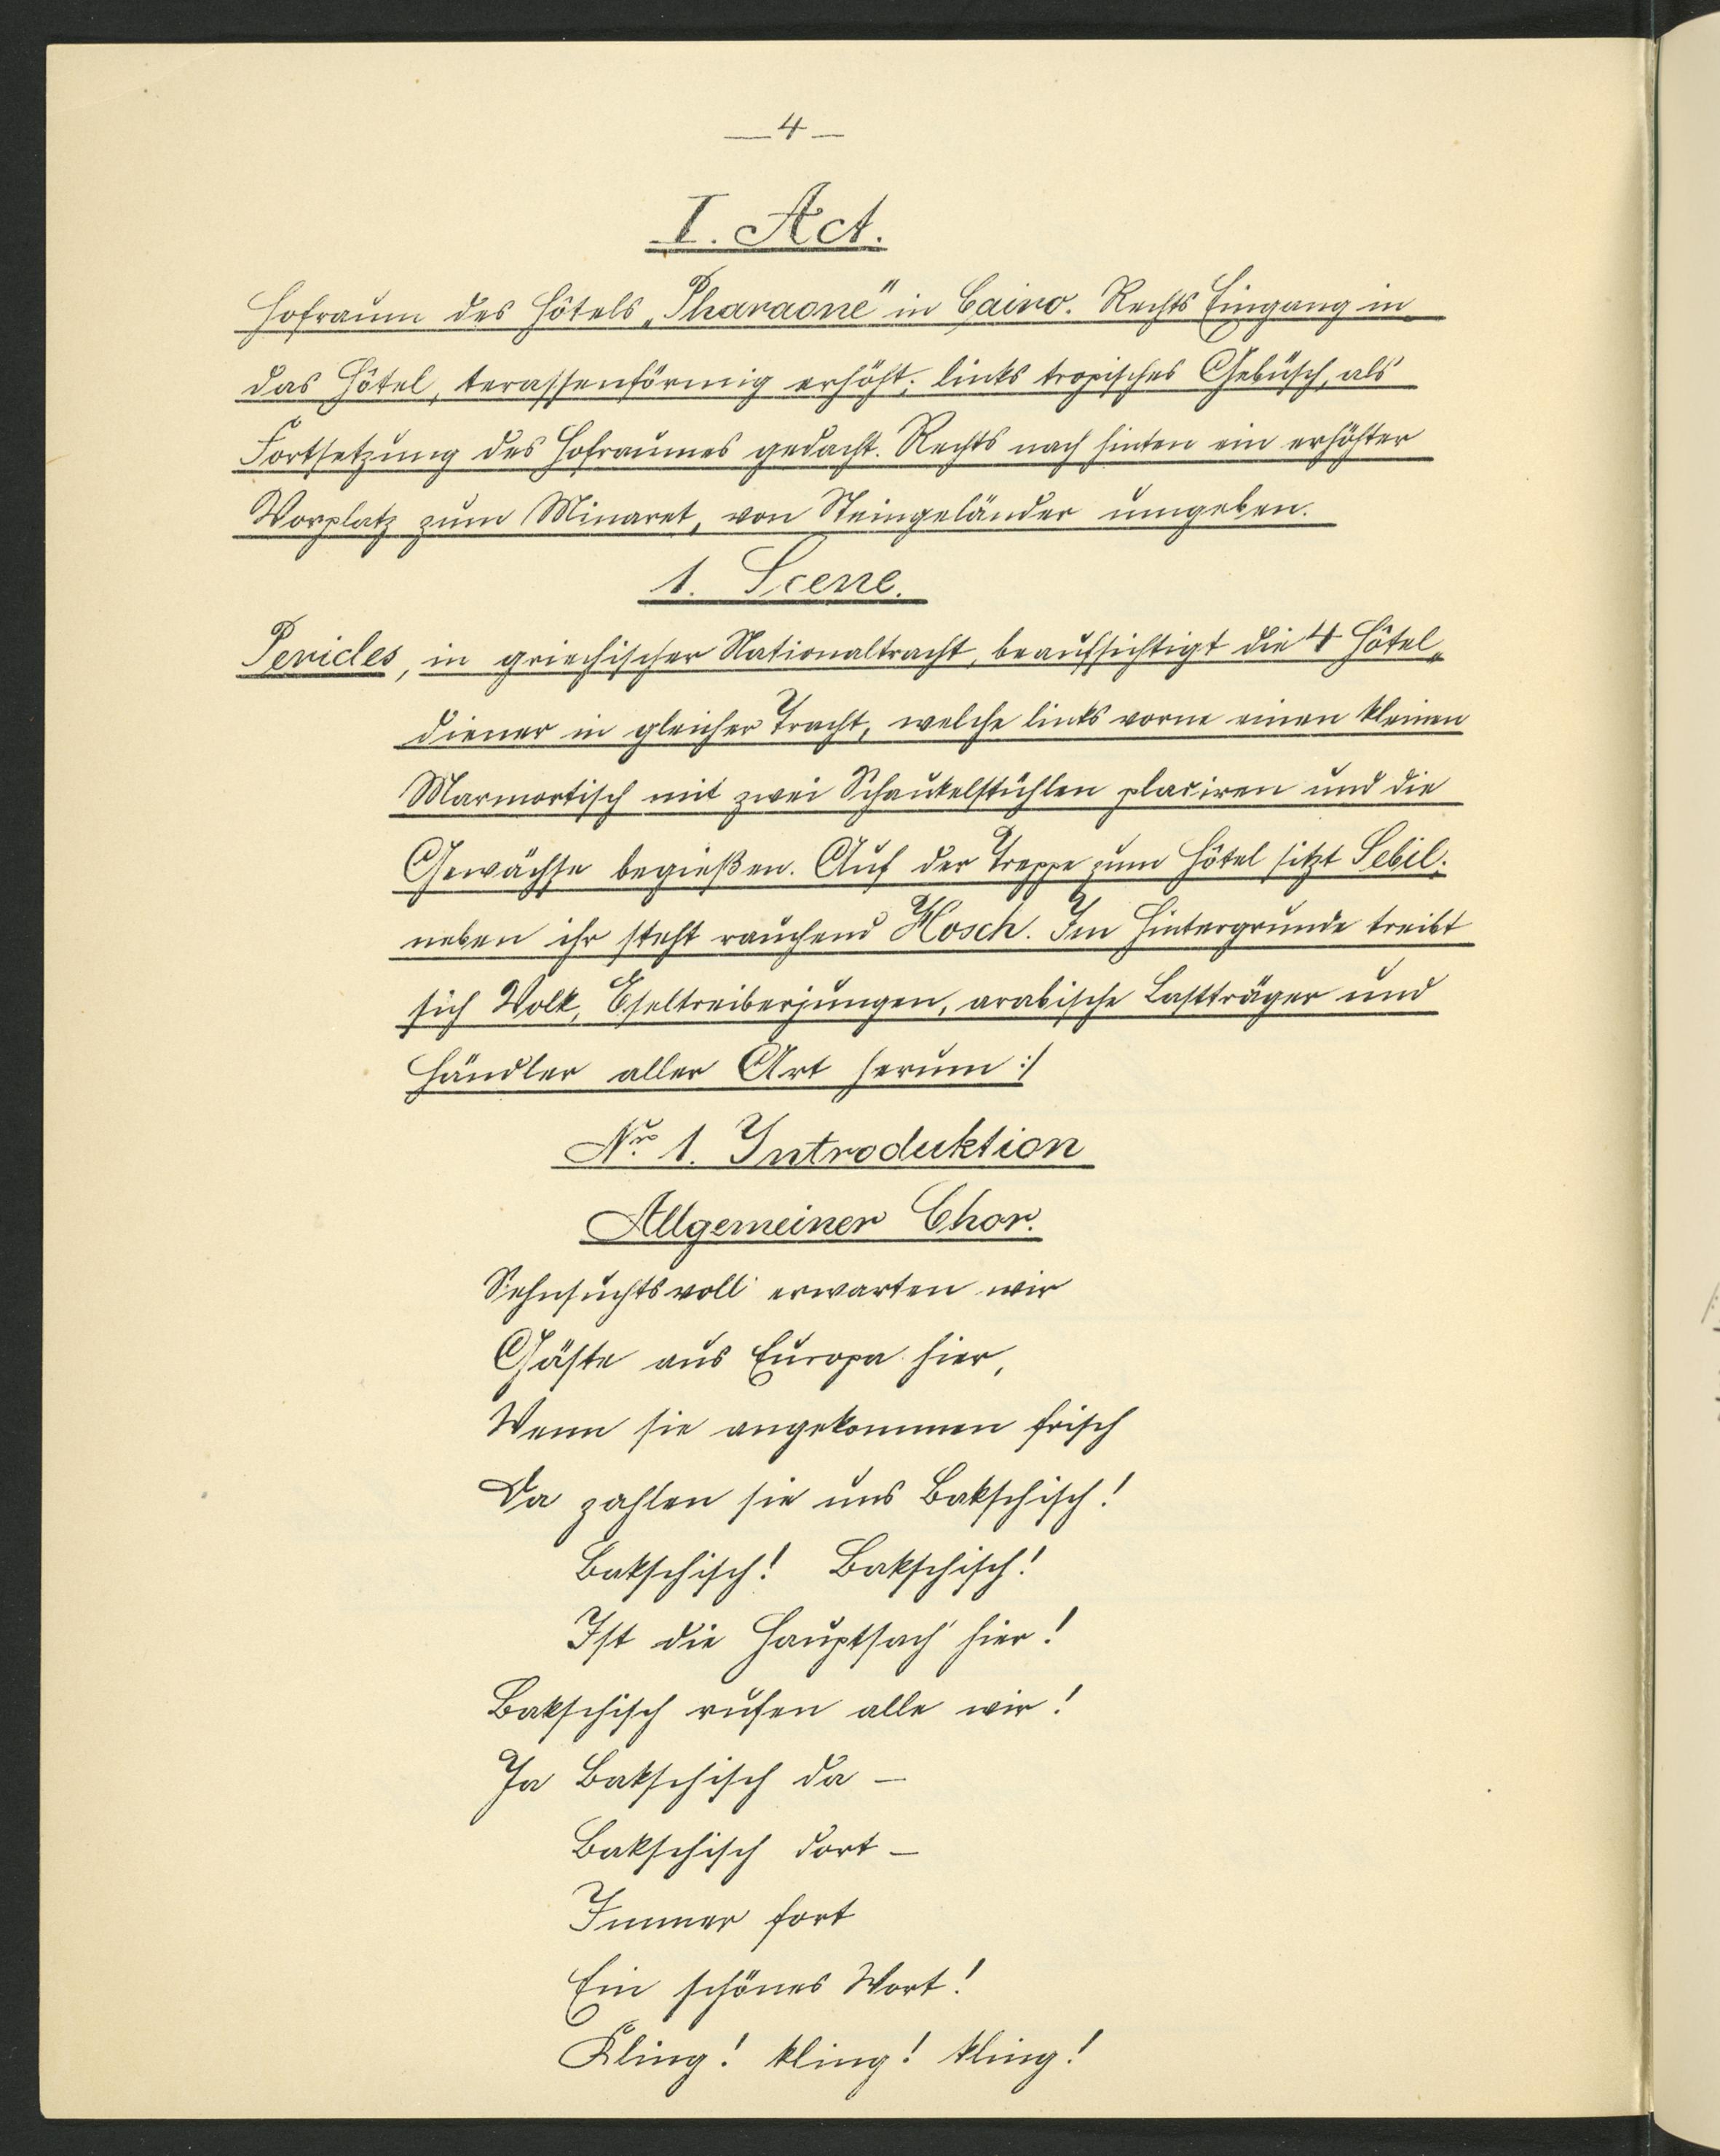 — 4 —
I. Act.
Hofraum des Hôtels „Pharaone" in Cairo. Rechts Eingang in
das Hôtel, terassenförmig erhöht; links tropisches Gebüsch, als
Fortsetzung des Hofraumes gedacht. Rechts nach hinten ein erhöhter
Vorplatz zum Minaret, von Steingeländer umgeben.
1. Scene.
Pericles, in griechischer Nationaltracht, beaufsichtigt die 4 Hôtel„
diener in gleicher Tracht, welche links vorne einen kleinen
Marmortisch mit zwei Schaukelstühlen placiren und die
Gewächse begießen. Auf der Treppe zum Hôtel sitzt Sebil;
neben ihr steht rauchend Hosch. Im Hintergrunde treibt
sich Volk, Eseltreiberjungen, arabische Lastträger und
Händler aller Art herum :/
Nro 1. Introduktion
Allgemeiner Chor.
Sehnsuchtsvoll erwarten wir
Gäste aus Europa hier,
Wenn sie angekommen frisch
Da zahlen sie uns Bakschisch!
Bakschisch! Bakschisch!
Ist die Hauptsach' hier!
Bakschisch rufen alle wir!
Ja Bakschisch da –
Bakschisch dort –
Immer fort
Ein schönes Wort!
Kling! kling! kling!